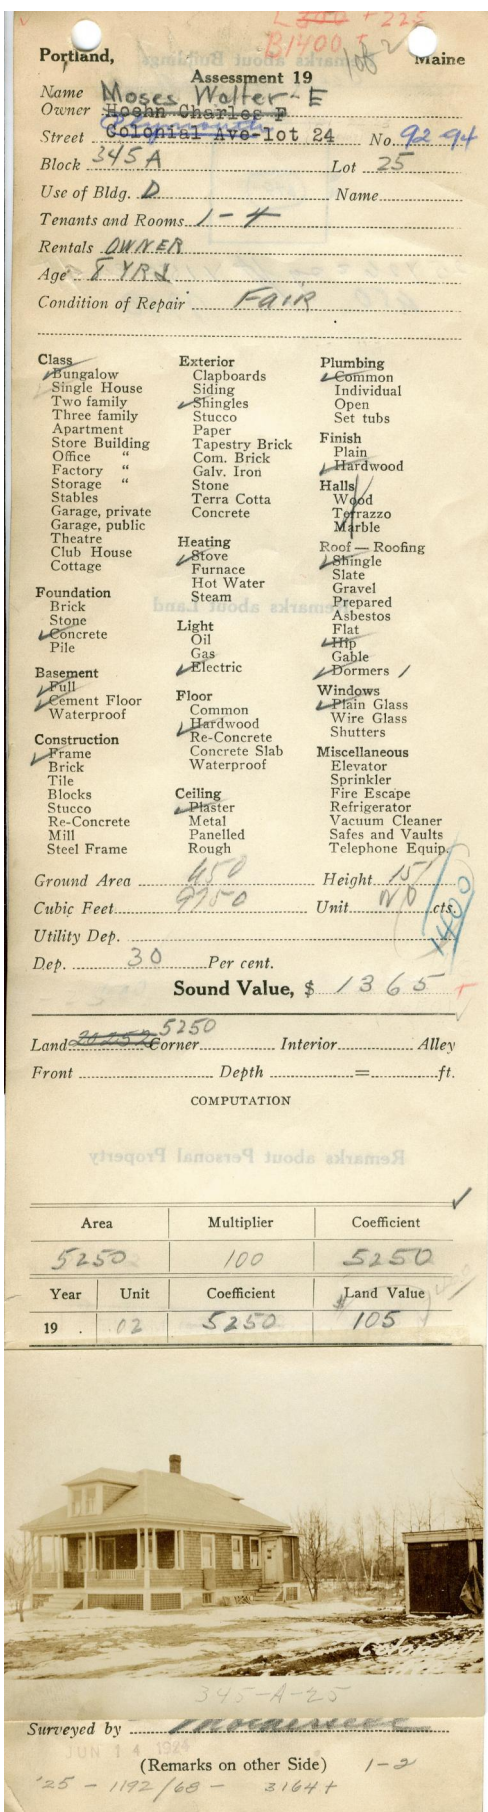 L 300 + 225
B1400 +
Portland, Maine
Assessment 19
Name Moses Walter E
Owner Hoehn Charles F
Street Plymouth Colonial Ave-lot 24 No. 92 94
Block 345 A Lot 25
Use of Bldg. D Name
Tenants and Rooms 1-4
Rentals OWNER
Age 8 YRS
Condition of Repair FAIR
Class
Bungalow
Single House
Two family
Three family
Apartment
Store Building
Office "
Factory "
Storage "
Stables
Garage, private
Garage, public
Theatre
Club House
Cottage
Foundation
Brick
Stone
Concrete
Pile
Basement
Full
Cement Floor
Waterproof
Construction
Frame
Brick
Tile
Blocks
Stucco
Re-Concrete
Mill
Steel Frame
Exterior
Clapboards
Siding
Shingles
Stucco
Paper
Tapestry Brick
Com. Brick
Galv. Iron
Stone
Terra Cotta
Concrete
Heating
Stove
Furnace
Hot Water
Steam
Light
Oil
Gas
Electric
Floor
Common
Hardwood
Re-Concrete
Concrete Slab
Waterproof
Ceiling
Plaster
Metal
Panelled
Rough
Plumbing
Common
Individual
Open
Set tubs
Finish
Plain
Hardwood
Halls
Wood
Terrazzo
Marble
Roof — Roofing
Shingle
Slate
Gravel
Prepared
Asbestos
Flat
Hip
Gable
Dormers 1
Windows
Plain Glass
Wire Glass
Shutters
Miscellaneous
Elevator
Sprinkler
Fire Escape
Refrigerator
Vacuum Cleaner
Safes and Vaults
Telephone Equip.
Ground Area 650 Height 15'
Cubic Feet 9750 Unit cts.
1400
Utility Dep.
Dep. 30 Per cent.
Sound Value, $ 1365 +
5250
Land Corner Interior Alley
Front Depth = ft.
COMPUTATION
Remarks about Personal Property
Area Multiplier Coefficient
5250 100 5250
Year Unit Coefficient Land Value
19 .02 5250 $ 105
345-A-25
Surveyed by
JUN 14 1924
(Remarks on other Side) 1-2
'25 - 1192/68 - 3164+